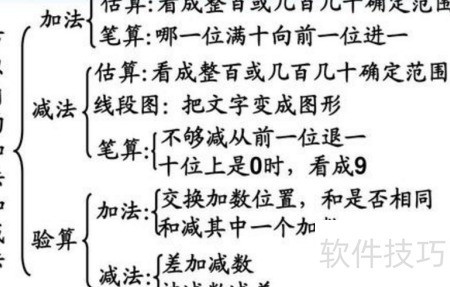 加法
估算:看成整百或几百几十确定范围
笔算:哪一位满十向前一位进一
减法
估算:看成整百或几百几十确定范围
线段图：把文字变成图形
笔算:
不够减从前一位退一
十位上是0时，看成9
验算
加法:
交换加数位置，和是否相同
和减其中一个加
减法:
差加减数
软件技巧